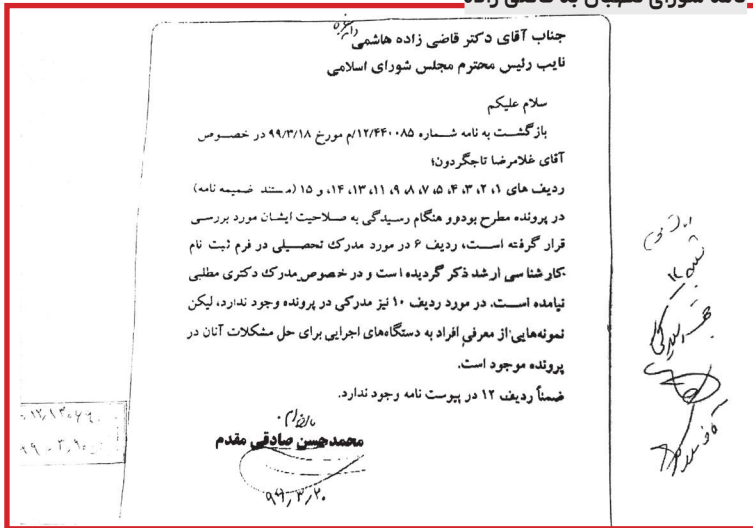 نامه شورای نگهبان به قاضی زاده
جناب آقای دکتر قاضی زاده هاشمی
نایب رئیس محترم مجلس شورای اسلامی
سلام علیکم
بازگشت به نامه شماره ۱۲/۴۴۰۰۸۵/م مورخ ۹۹/۳/۱۸ در خصوص
آقای غلامرضا تاجگردون؛
ردیف های ۱، ۲، ۳، ۴، ۵، ۷، ۸، ۹، ۱۱، ۱۳، ۱۴، و ۱۵ (مستند ضمیمه نامه)
در پرونده مطرح بوده و هنگام رسیدگی به صلاحیت ایشان مورد بررسی
قرار گرفته است، ردیف ۶ در مورد مدرک تحصیلی در فرم ثبت نام
کارشناسی ارشد ذکر گردیده است و در خصوص مدرک دکتری مطلبی
نیامده است. در مورد ردیف ۱۰ نیز مدرکی در پرونده وجود ندارد، لیکن
نمونه‌هایی از معرفی افراد به دستگاه‌های اجرایی برای حل مشکلات آنان در
پرونده موجود است.
ضمناً ردیف ۱۲ در پیوست نامه وجود ندارد.
محمدحسن صادقی مقدم
۹۹/۳/۲۰